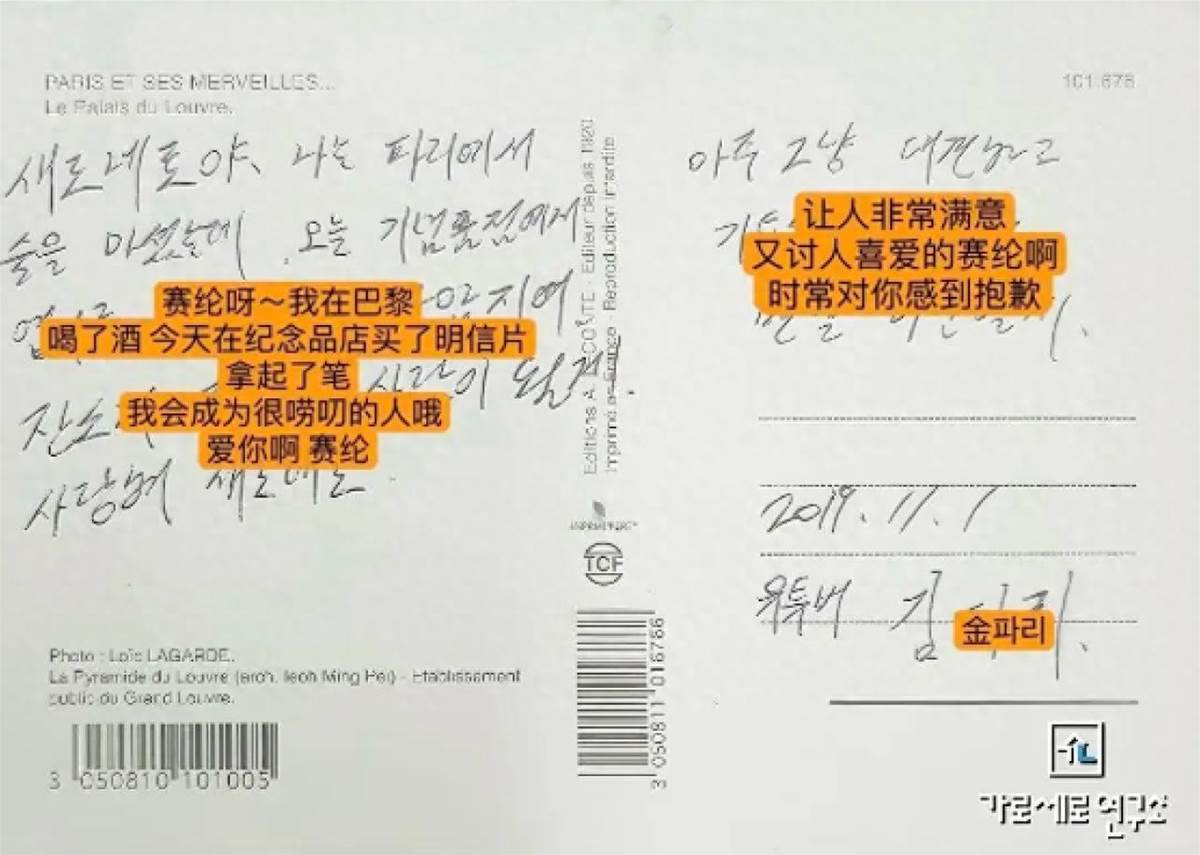 PARIS ET SES MERVEILLES...
Le Palais du Louvre.
101.676
새로네로야, 나는 파리에서
술을 마셨는데 . 오늘 기념품점에서
赛纶呀～我在巴黎
喝了酒 今天在纪念品店买了明信片
拿起了笔
我会成为很唠叨的人哦
爱你啊 赛纶
사람이 될게.
사랑해 새로네로.
Editions A. LECONTE - Editeur depuis 1920
Imprimé en France - Reproduction interdite
IMPRIM'VERT
TCF
아주 그냥 대견하고
让人非常满意
又讨人喜爱的赛纶啊
时常对你感到抱歉
2019. 11. 1
유튜버 김
金파리
Photo : Loïc LAGARDE.
La Pyramide du Louvre (arch. Ieoh Ming Pei) - Etablissement
public du Grand Louvre.
3 050810 101005
3 050811 016766
가로세로연구소